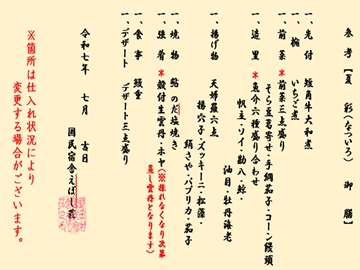 参考【夏 彩(なつイろ) 御膳】
一、先付 短角牛大和煮
一、椀 いちご煮
一、前菜 ※前菜三点盛り
そら豆菊寄せ・手綱茄子・コーン饅頭
一、造里 ※魚介六種盛り合わせ
帆立・ソイ・勘八・鯨・
油目・牡丹海老
一、揚げ物 天婦羅六点
揚穴子・ズッキーニ・松藻・
絹さや・パプリカ・茄子
一、焼物 鮎のだ塩焼き
一、強肴 ※殻付生雲丹・ホヤ(※採れなくなり次第
蒸し雲丹となります)
一、食事 鰻重
一、デザート デザート三点盛り
令和七年 七月 吉日
国民宿舎えぼし荘
※箇所は仕入れ状況により
変更する場合がございます。